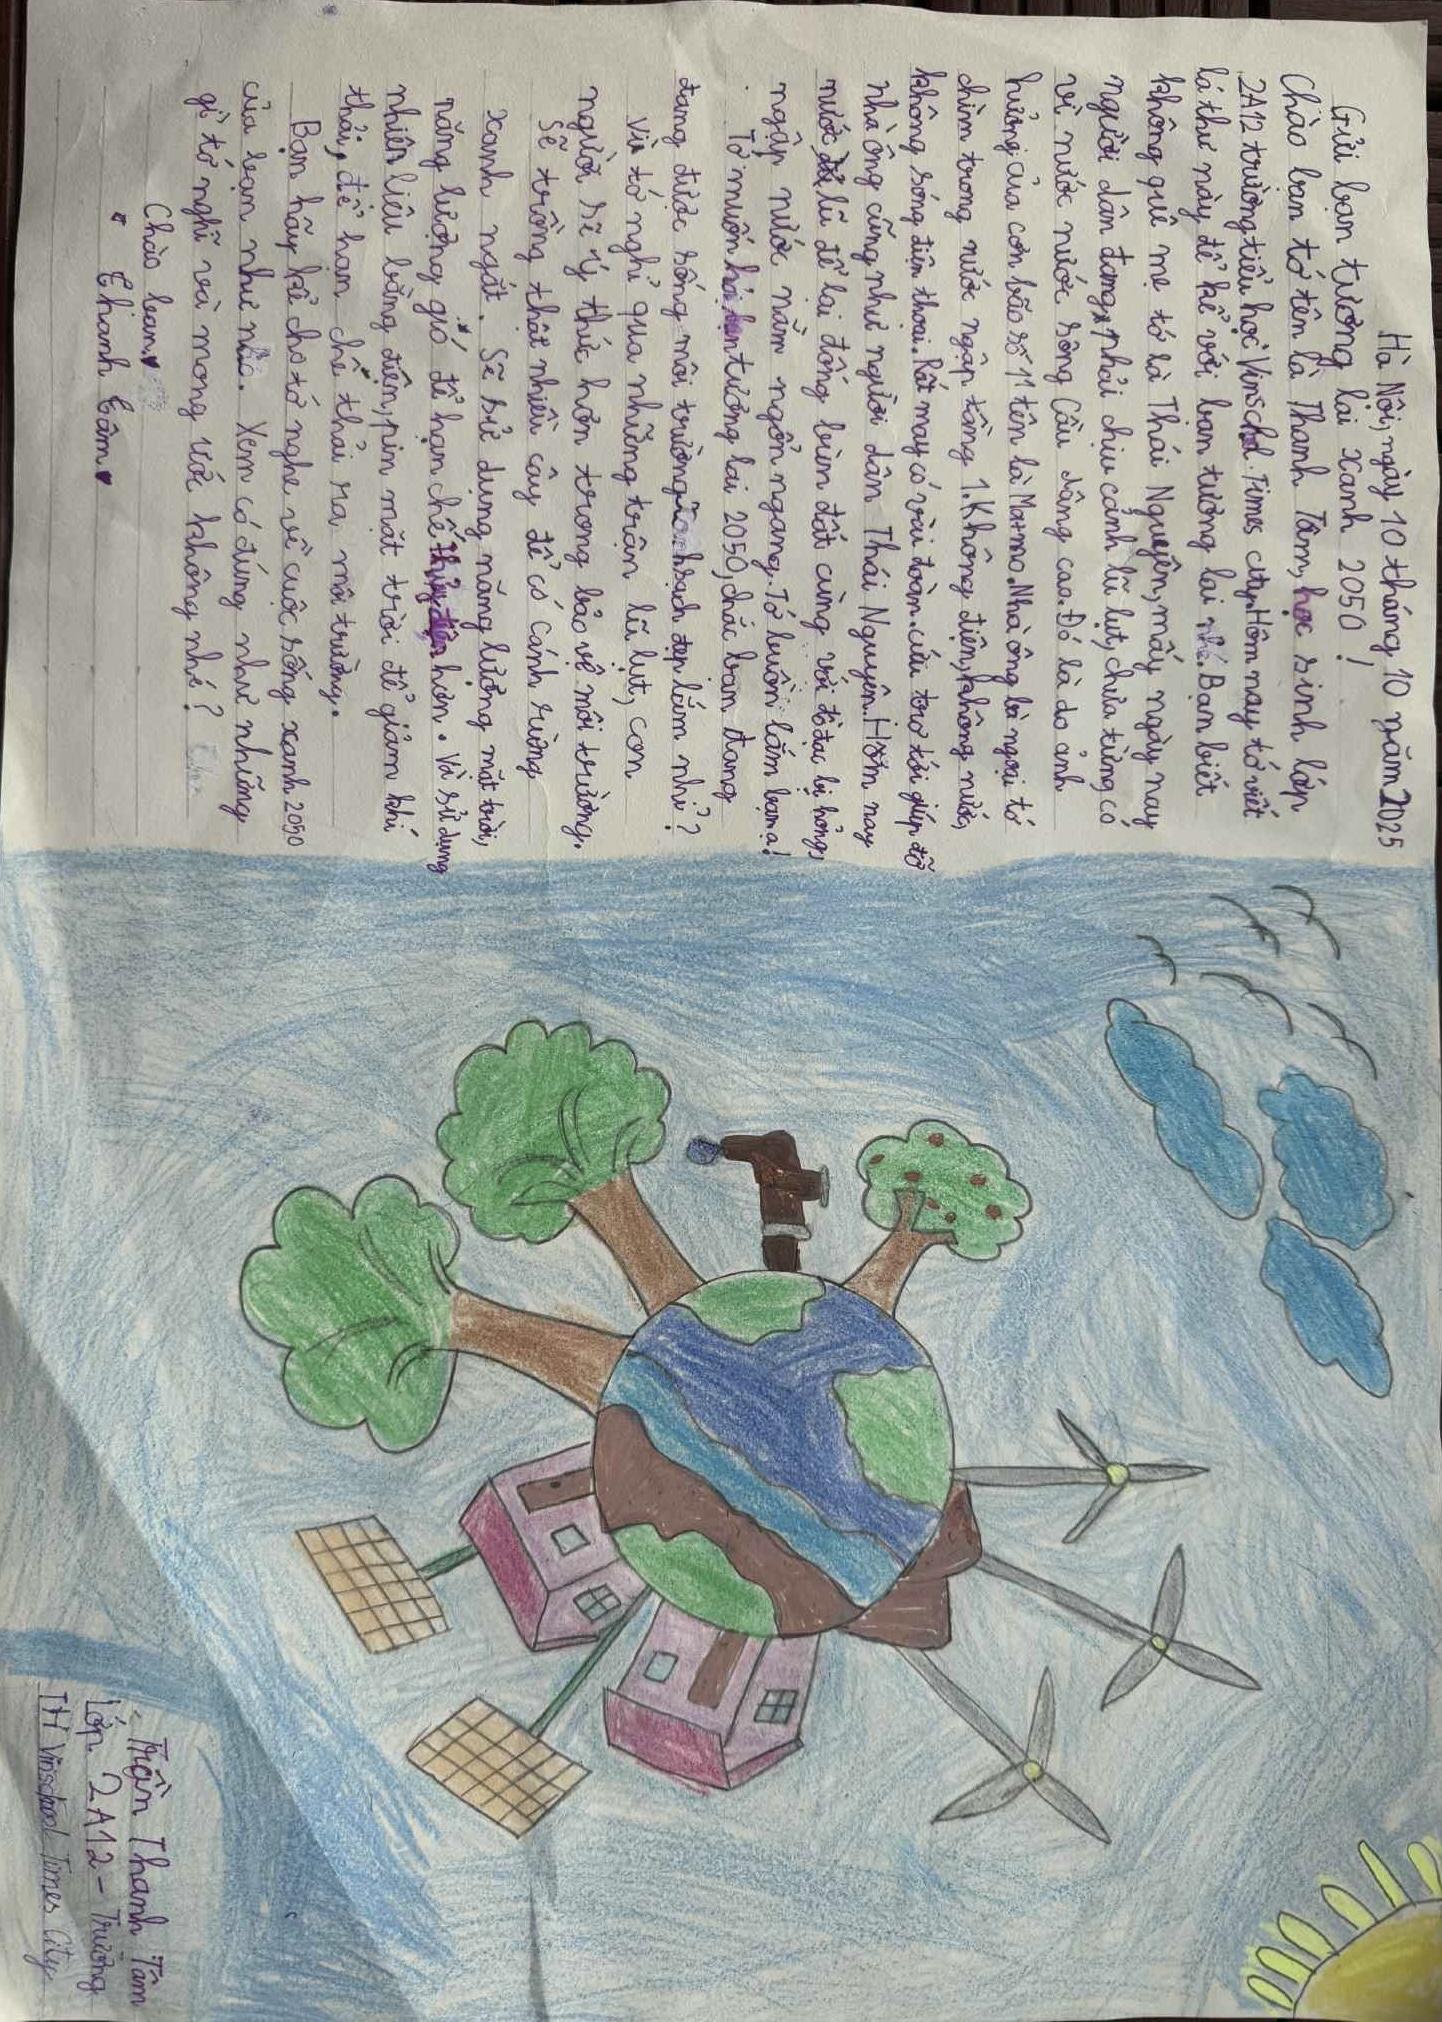 Hà Nội, ngày 10 tháng 10 năm 2025
Gửi bạn tương lại xanh 2050!
Chào bạn tớ tên là Thanh Tâm, học sinh lớp
2A12 trường tiểu học Vinschol Times city. Hôm nay tớ viết
lá thư này để kể với bạn tương lai nhé. Bạn biết
không quê mẹ tớ là Thái Nguyên, mấy ngày nay
người dân đang phải chịu cảnh lũ lụt, chưa từng có
vì nước nước sông Cầu dâng cao. Đó là do ảnh
hưởng của cơn bão số 11 tên là Matmo. Nhà ông bà ngoại tớ
chìm trong nước ngập tầng 1. Không điện, không nước,
không sóng điện thoại. Rất may có vài đoàn cứu trợ tới giúp đỡ
nhà ông cũng như người dân Thái Nguyên. Hôm nay
nước lũ để lại đống bùn đất cùng với đồ đạc bị hỏng,
ngập nước nằm ngổn ngang. Tớ buồn lắm bạn ạ!
Tớ muốn hỏi bạn tương lai 2050, chắc bạn đang
đang được sống môi trường trong sạch đẹp lắm nhỉ?
Và tớ nghĩ qua những trận lũ lụt, con
người sẽ ý thức hơn trong bảo vệ môi trường.
Sẽ trồng thật nhiều cây để có cánh rừng
xanh ngát. Sẽ sử dụng năng lượng mặt trời,
năng lượng gió để hạn chế thủy điện hơn. Và sử dụng
nhiên liệu bằng điện, pin mặt trời để giảm khí
thải, để hạn chế thải ra môi trường.
Bạn hãy kể cho tớ nghe về cuộc sống xanh 2050
của bạn như nào. Xem có đúng như những
gì tớ nghĩ và mong ước không nhé?
Chào bạn
Thanh Tâm
Trần Thanh Tâm
Lớp 2A12 - Trường
TH Vinschool Times City